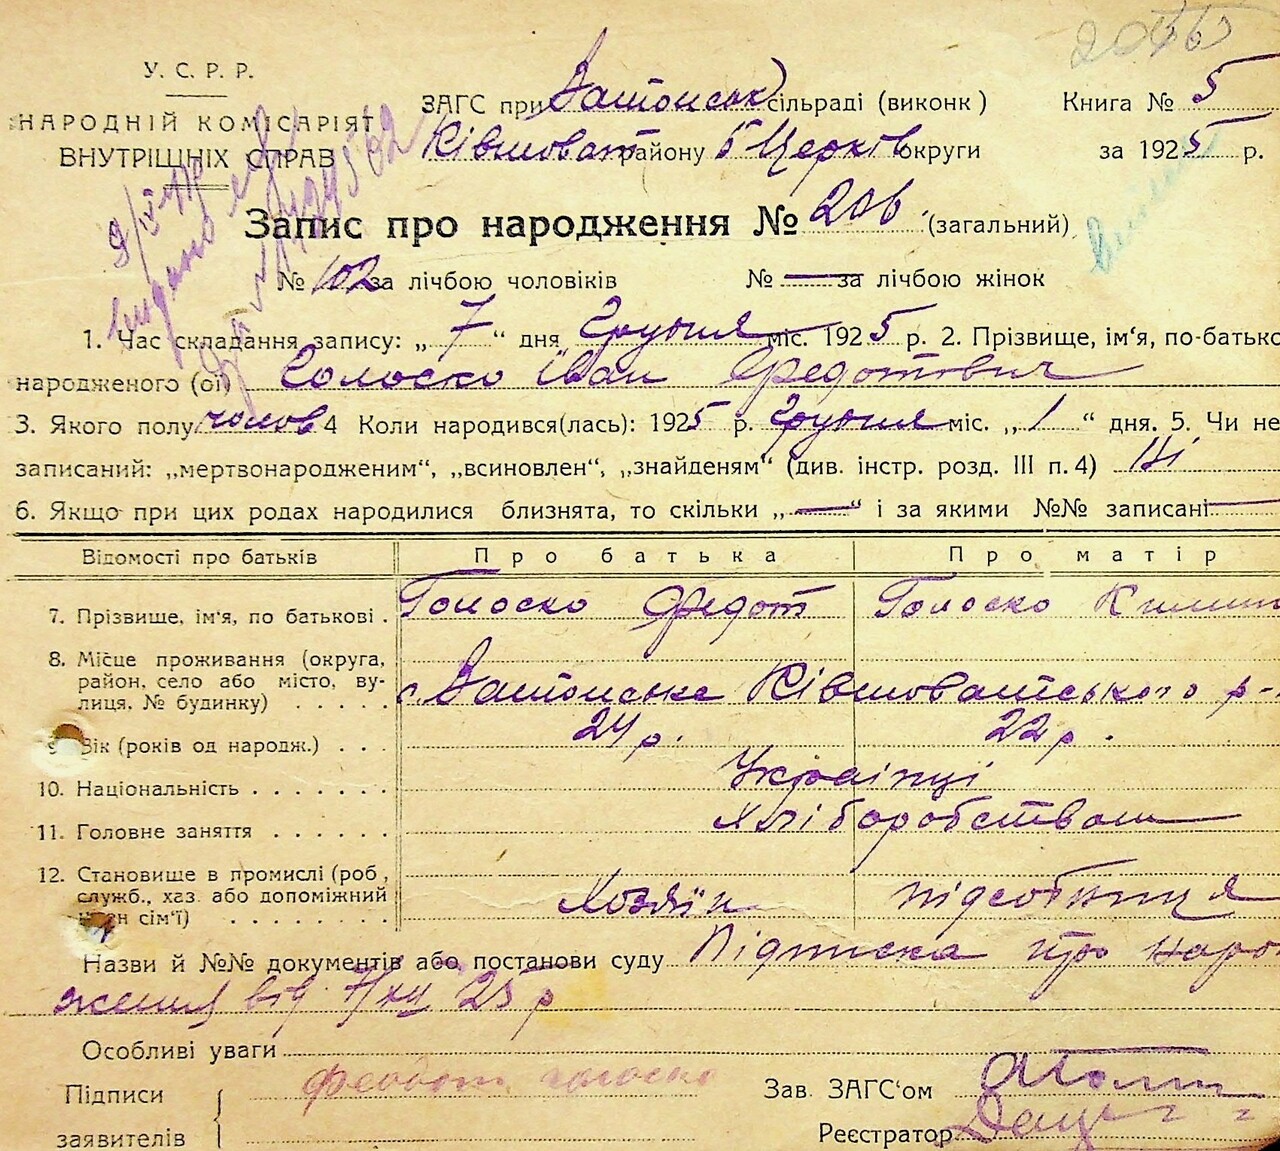 У. С. Р. Р.
НАРОДНІЙ КОМІСАРІЯТ
ВНУТРІШНІХ СПРАВ
ЗАГС при сільраді (виконк)
Ківшоват району Б Церків округи
Книга № 5
за 1925 р.
Запис про народження № 206 (загальний)
№ 102 за лічбою чоловіків № — за лічбою жінок
1. Час складання запису: „7“ дня Грудня міс. 1925 р. 2. Прізвище, ім‘я, по-батько
народженого (ої) Голоско Іван Федотович
3. Якого полу чолов 4 Коли народився(лась): 1925 р. Грудня міс. „1“ дня. 5. Чи не
записаний: „мертвонародженим“, „всиновлен“, „знайденям“ (див. інстр. розд. III п. 4) Ні
6. Якщо при цих родах народилися близнята, то скільки „—“ і за якими №№ записані —
Відомості про батьків Про батька Про матір
7. Прізвище, ім‘я, по батькові . Голоско Федот Голоско
8. Місце проживання (округа,
район, село або місто, ву-
лиця, № будинку) . . . . . с. Ківшоватського р-
9. Вік (років од народж.) . . . 24 р. 22 р.
10. Національність . . . . . . . Українці
11. Головне заняття . . . . . . Хліборобством
12. Становище в промислі (роб.,
служб., хаз. або допоміжний
член сім‘ї) . . . . . . . Хозяїн підсобниця
Назви й №№ документів або постанови суду Підписка про наро
ження від 7/XII 25 р
Особливі уваги
Підписи
заявителів
Феодот голоско
Зав. ЗАГС‘ом
Реєстратор